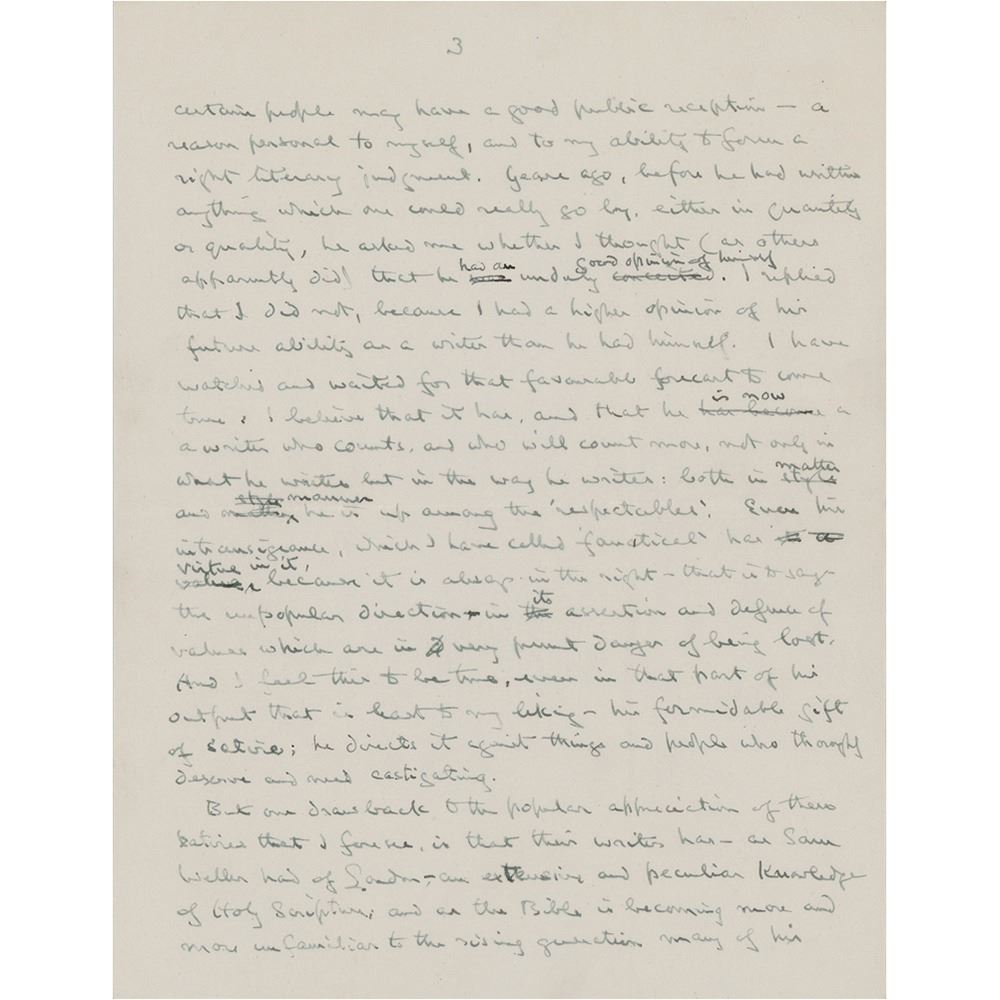 3
certain people may have a good public reception — a
reason personal to myself, and to my ability to form a
right literary judgment. Years ago, before he had written
anything which one could really go by, either in quantity
or quality, he asked me whether I thought (as others
apparently did) that he had an unduly good opinion of himself conceited. I replied
that I did not, because I had a higher opinion of his
future ability as a writer than he had himself. I have
watched and waited for that favourable forecast to come
true; I believe that it has, and that he is now has become a
a writer who counts, and who will count more, not only in
what he writes but in the way he writes: both in matter style
and manner he is up among the 'respectables'. Even his
intransigeance, which I have called 'fanatical' has
virtue in it, because it is always in the right — that is to say
the unpopular direction — in its the assertion and defence of
values which are in very present danger of being lost.
And I feel this to be true, even in that part of his
output that is least to my liking — his formidable gift
of satire; he directs it against things and people who thoroughly
deserve and need castigating.
But one drawback to the popular appreciation of these
satires that I foresee, is that their writer has — as Sam
Weller had of London — an extensive and peculiar knowledge
of Holy Scripture; and as the Bible is becoming more and
more unfamiliar to the rising generation many of his